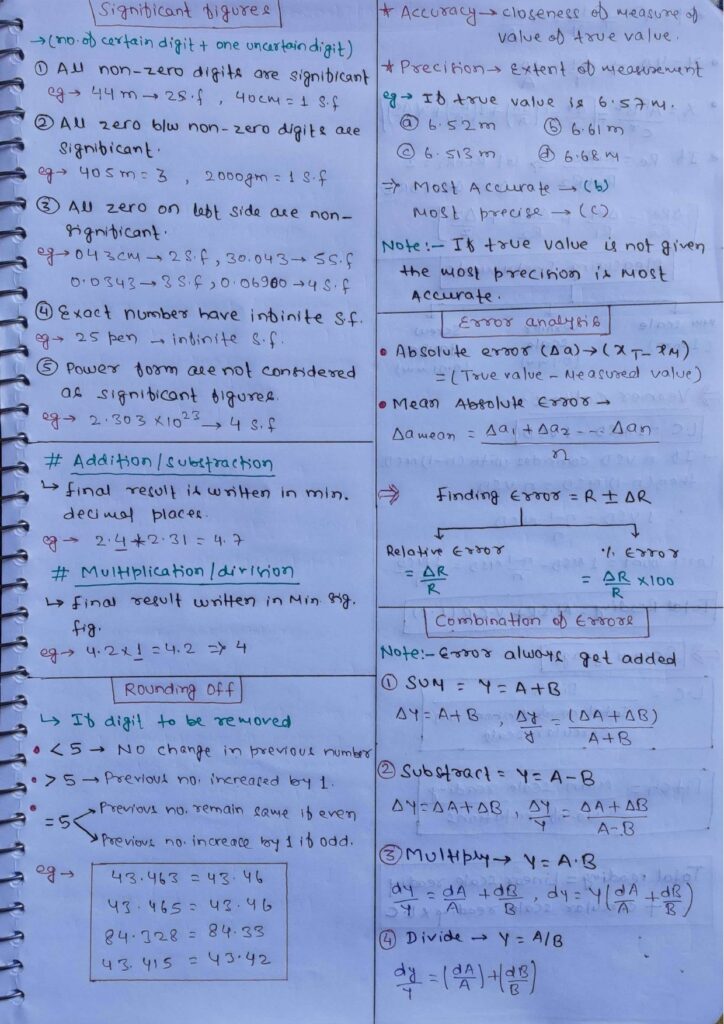 Significant figures
→ (no. of certain digit + one uncertain digit)
① All non-zero digits are significant
eg → 44m → 2S.f , 40cm = 1 S.f
② All zero b/w non-zero digits are
significant.
eg → 405m = 3 , 2000gm = 1 S.f
③ All zero on left side are non-
significant.
eg → 043cm → 2S.f, 30.043 → 5S.f
0.0343 → 3S.f, 0.06900 → 4S.f
④ Exact number have infinite S.f.
eg → 25 pen → infinite S.f.
⑤ Power form are not considered
as significant figures.
eg → 2.303 × 10²³ → 4 S.f
# Addition/substraction
↳ final result is written in min.
decimal places.
eg → 2.4 + 2.31 = 4.7
# Multiplication/division
↳ final result written in Min. Sig.
fig.
eg → 4.2 × 1 = 4.2 ⇒ 4
Rounding Off
↳ If digit to be removed
• < 5 → No change in previous number
• > 5 → Previous no. increased by 1.
• = 5 → Previous no. remain same if even
→ Previous no. increase by 1 if odd.
eg →
43.463 = 43.46
43.465 = 43.46
84.328 = 84.33
43.415 = 43.42
* Accuracy → closeness of measure of
value of true value.
* Precision → Extent of measurement
eg → If true value is 6.57m.
ⓐ 6.52m ⓑ 6.61m
ⓒ 6.513m ⓓ 6.68m
⇒ Most Accurate → (b)
Most precise → (c)
Note:- If true value is not given
the most precision is most
Accurate.
Error analysis
• Absolute error (Δa) → (x_T - x_M)
= (True value - Measured value)
• Mean Absolute Error →
Δa mean = (Δa₁ + Δa₂ ---- Δan)/n
⇒ Finding Error = R ± ΔR
Relative Error % Error
= ΔR/R = ΔR/R × 100
Combination of Errors
Note:- Error always get added
① SUM = Y = A+B
ΔY = A+B , Δy/y = (ΔA + ΔB)/A+B
② Substract = Y = A-B
ΔY = ΔA + ΔB , Δy/Y = ΔA + ΔB/A-B
③ Multiply → Y = A.B
dy/Y = dA/A + dB/B , dy = Y(dA/A + dB/B)
④ Divide → Y = A/B
dy/Y = (dA/A) + (dB/B)